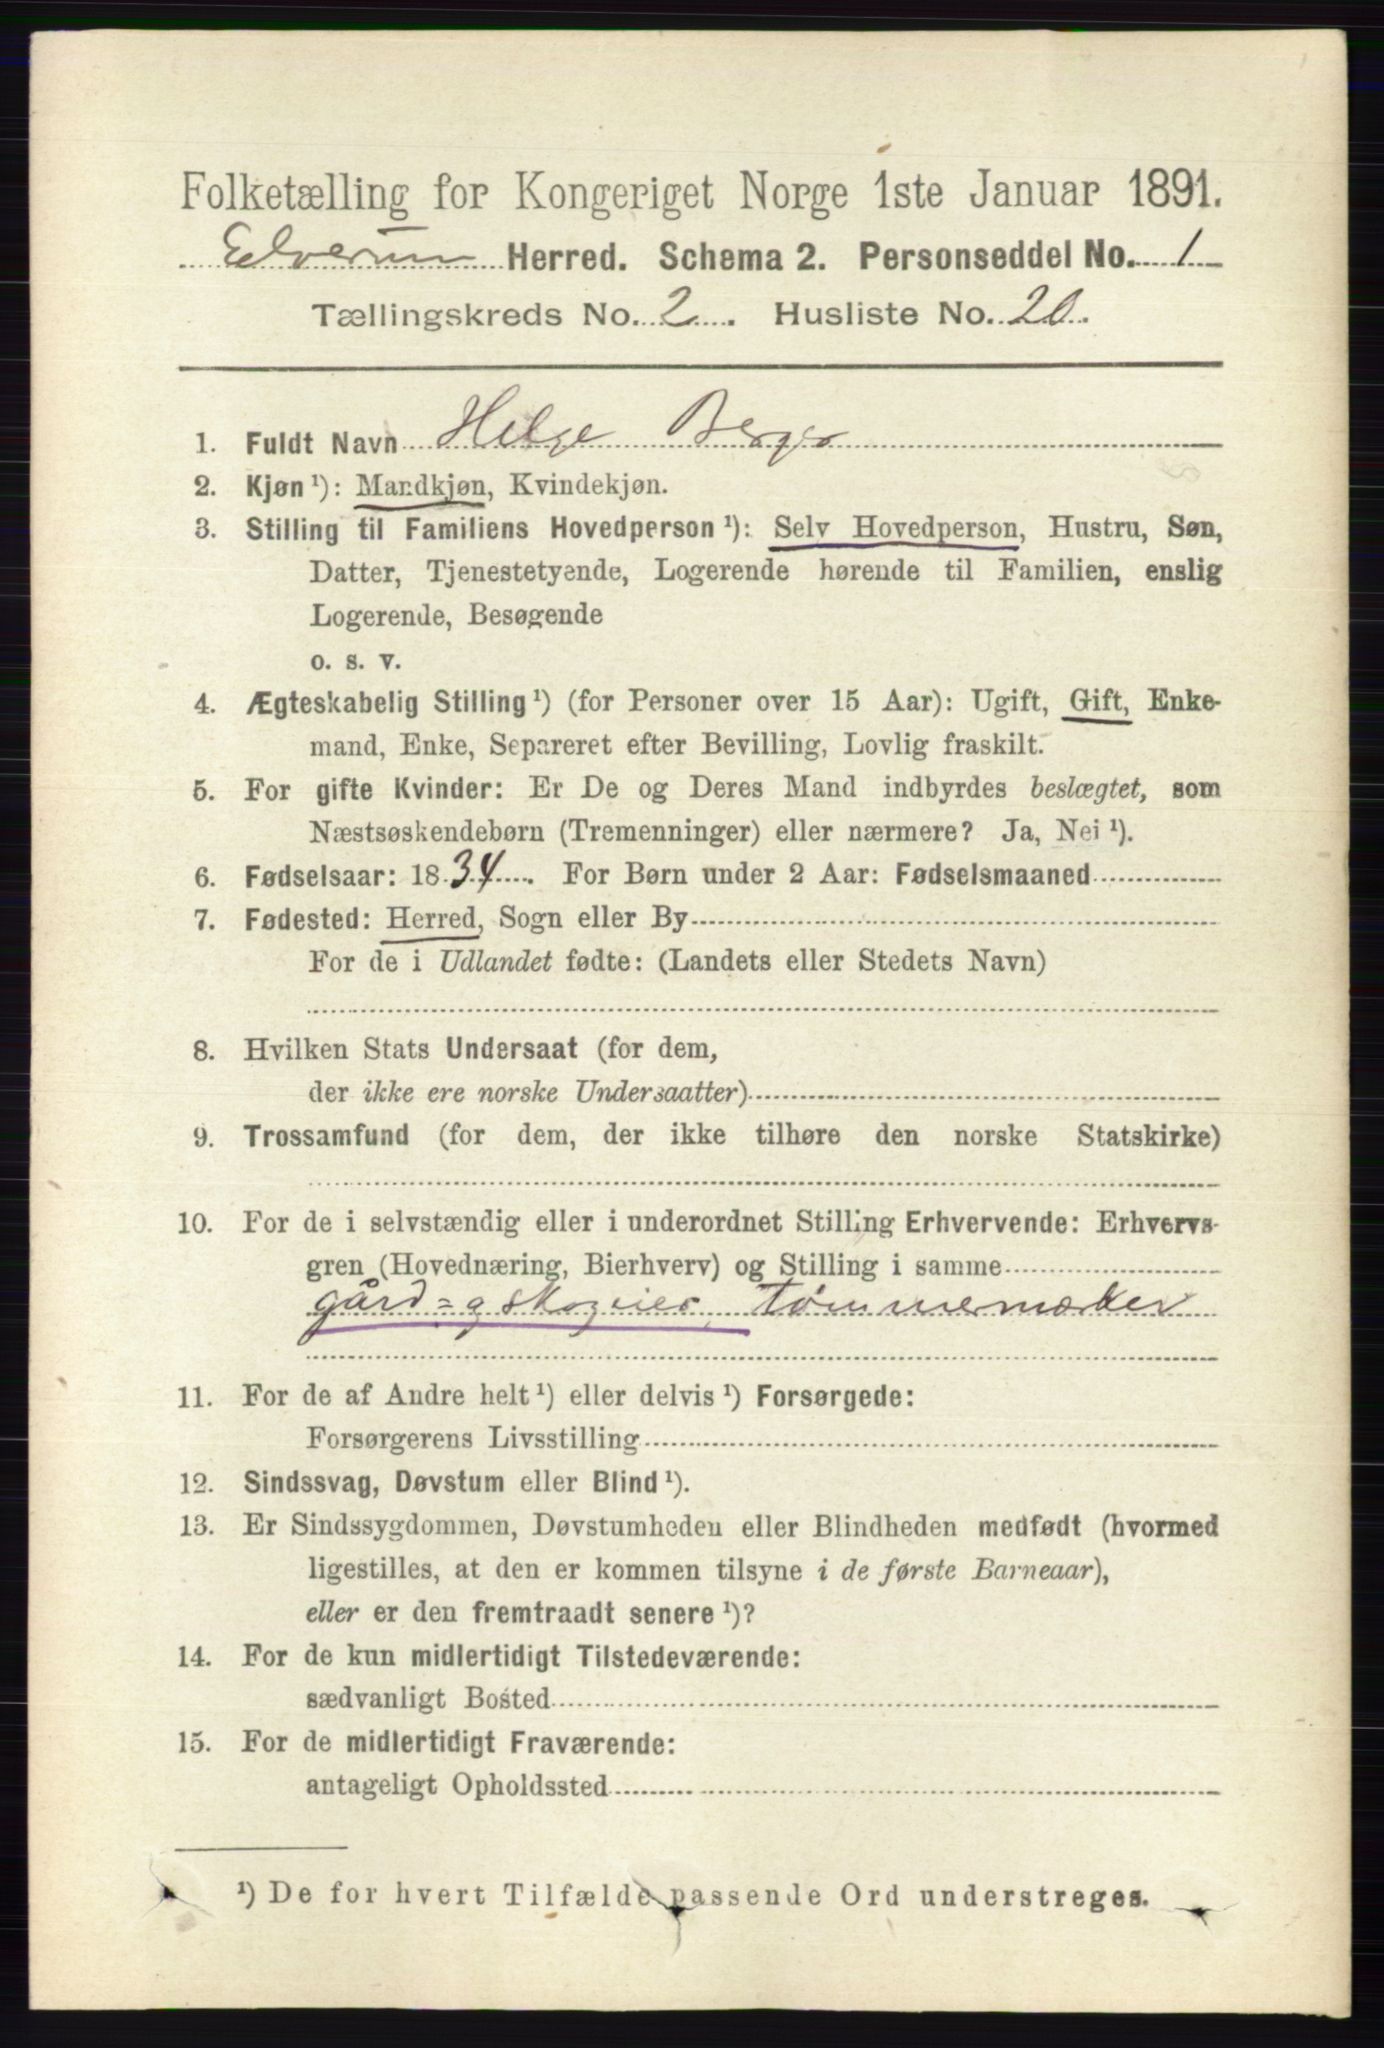 Folketælling for Kongeriget Norge 1ste Januar 1891.
Elverum Herred. Schema 2. Personseddel No. 1
Tællingskreds No. 2. Husliste No. 20.
1. Fuldt Navn Helge Berger
2. Kjøn ¹): Mandkjøn, Kvindekjøn.
3. Stilling til Familiens Hovedperson ¹): Selv Hovedperson, Hustru, Søn,
Datter, Tjenestetyende, Logerende hørende til Familien, enslig
Logerende, Besøgende
o. s. v.
4. Ægteskabelig Stilling ¹) (for Personer over 15 Aar): Ugift, Gift, Enke-
mand, Enke, Separeret efter Bevilling, Lovlig fraskilt.
5. For gifte Kvinder: Er De og Deres Mand indbyrdes beslægtet, som
Næstsøskendebørn (Tremenninger) eller nærmere? Ja, Nei ¹).
6. Fødselsaar: 1834. For Børn under 2 Aar: Fødselsmaaned
7. Fødested: Herred, Sogn eller By
For de i Udlandet fødte: (Landets eller Stedets Navn)
8. Hvilken Stats Undersaat (for dem,
der ikke ere norske Undersaatter)
9. Trossamfund (for dem, der ikke tilhøre den norske Statskirke)
10. For de i selvstændig eller i underordnet Stilling Erhvervende: Erhvervs-
gren (Hovednæring, Bierhverv) og Stilling i samme
gård= g skogeier, tømmermærker
11. For de af Andre helt ¹) eller delvis ¹) Forsørgede:
Forsørgerens Livsstilling
12. Sindssvag, Døvstum eller Blind ¹).
13. Er Sindssygdommen, Døvstumheden eller Blindheden medfødt (hvormed
ligestilles, at den er kommen tilsyne i de første Barneaar),
eller er den fremtraadt senere ¹)?
14. For de kun midlertidigt Tilstedeværende:
sædvanligt Bosted
15. For de midlertidigt Fraværende:
antageligt Opholdssted
¹) De for hvert Tilfælde passende Ord understreges.